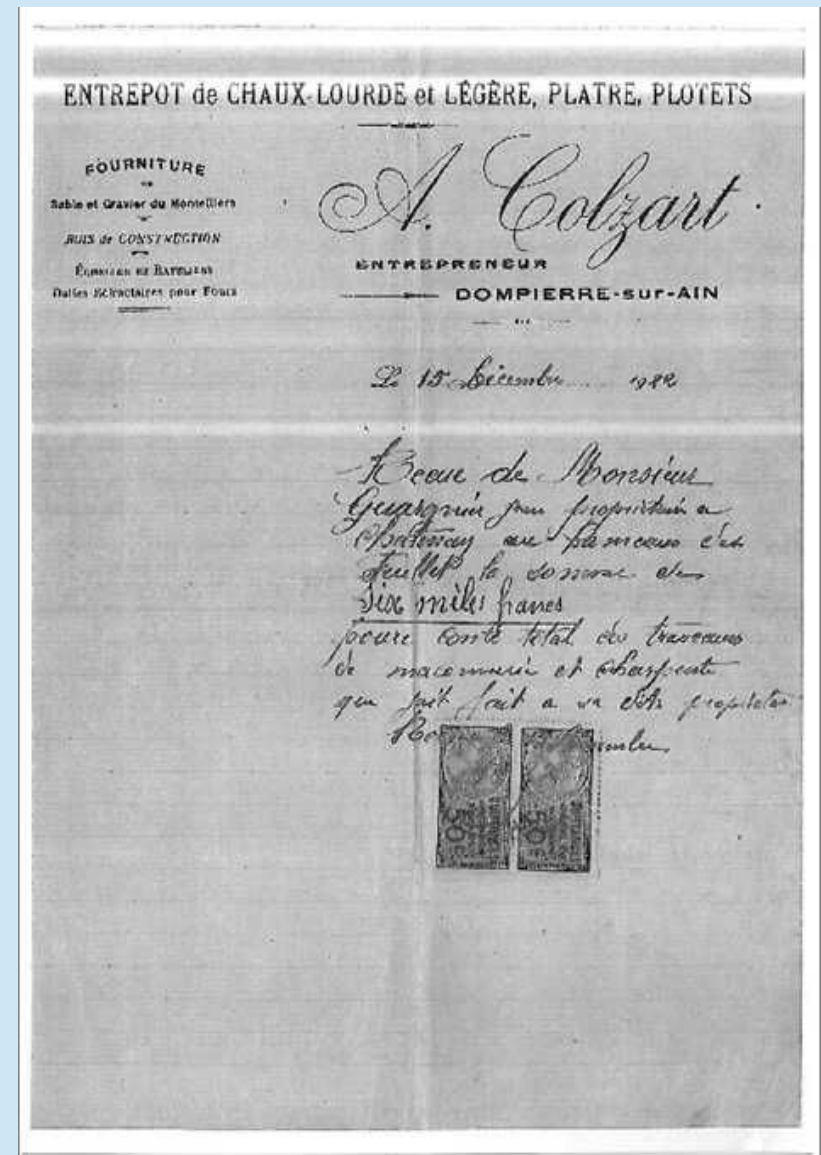 ENTREPOT de CHAUX-LOURDE et LÉGÈRE, PLATRE, PLOTETS
FOURNITURE
DE
Sable et Gravier du Montelliers
BOIS de CONSTRUCTION
Dalles Réfractaires pour Fours
A. Colzart
ENTREPRENEUR
DOMPIERRE-sur-AIN
Le 15 Décembre 1922
Recue de Monsieur
propriétaire a
Chatenay au hameaux des
la somme des
Six miles francs
poure conté total des travauux
de maconnerie et charpente
que fait a
50
50